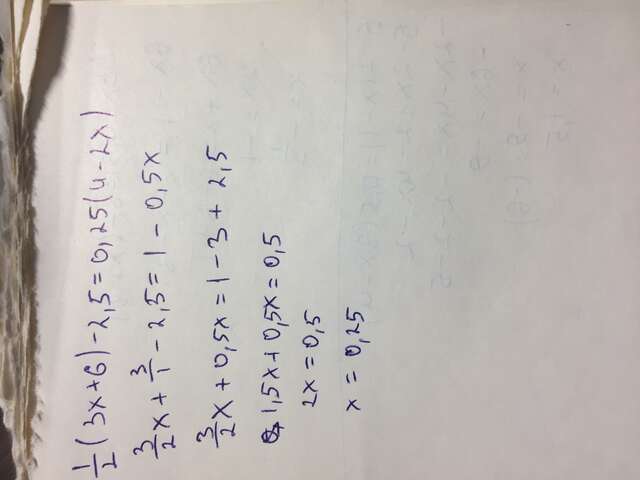 1/2 (3x+6) - 2,5 = 0,25(4-2x)
3/2 x + 3/1 - 2,5 = 1 - 0,5x
3/2 x + 0,5x = 1 - 3 + 2,5
1,5x + 0,5x = 0,5
2x = 0,5
x = 0,25